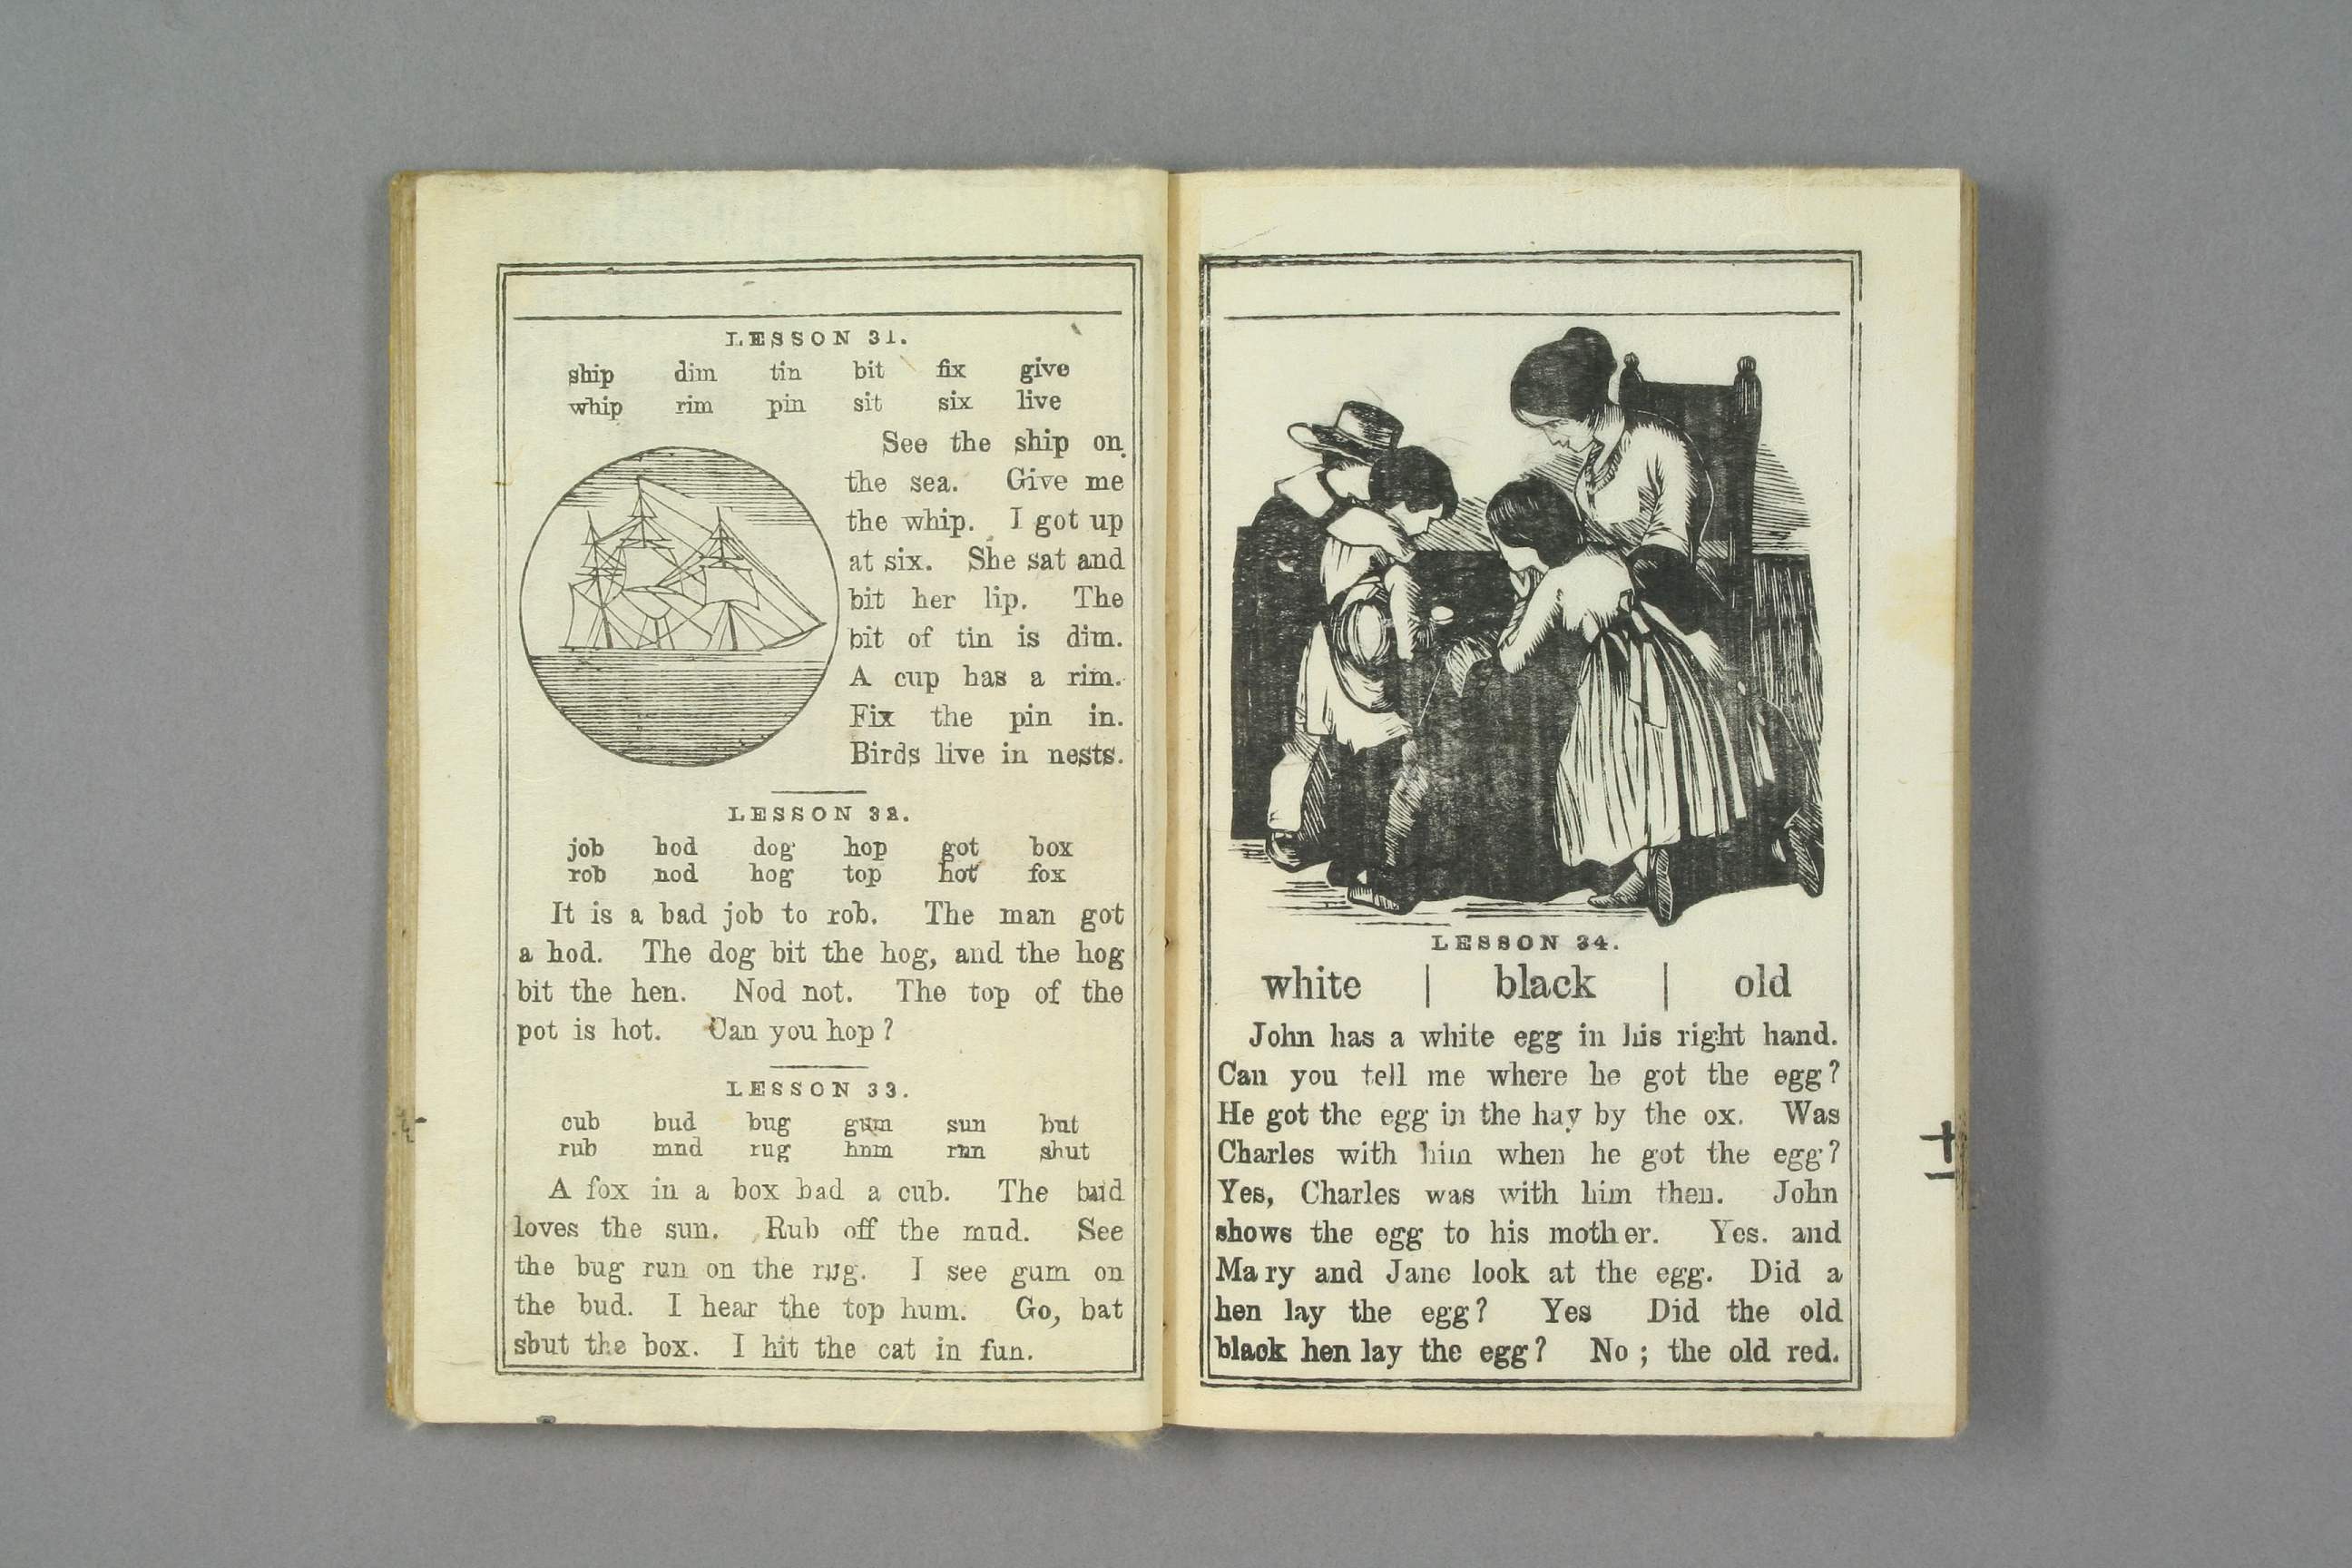 LESSON 31.
ship dim tin bit fix give
whip rim pin sit six live
See the ship on
the sea. Give me
the whip. I got up
at six. She sat and
bit her lip. The
bit of tin is dim.
A cup has a rim.
Fix the pin in.
Birds live in nests.
LESSON 32.
job hod dog hop got box
rob nod hog top hot fox
It is a bad job to rob. The man got
a hod. The dog bit the hog, and the hog
bit the hen. Nod not. The top of the
pot is hot. Can you hop ?
LESSON 33.
cub bud bug gum sun but
rub mnd rug hnm rnn shut
A fox in a box bad a cub. The bud
loves the sun. Rub off the mud. See
the bug run on the rug. I see gum on
the bud. I hear the top hum. Go, bat
sbut the box. I hit the cat in fun.
LESSON 34.
white | black | old
John has a white egg in his right hand.
Can you tell me where he got the egg?
He got the egg in the hay by the ox. Was
Charles with him when he got the egg?
Yes, Charles was with him then. John
shows the egg to his mother. Yes. and
Mary and Jane look at the egg. Did a
hen lay the egg? Yes Did the old
black hen lay the egg? No ; the old red.